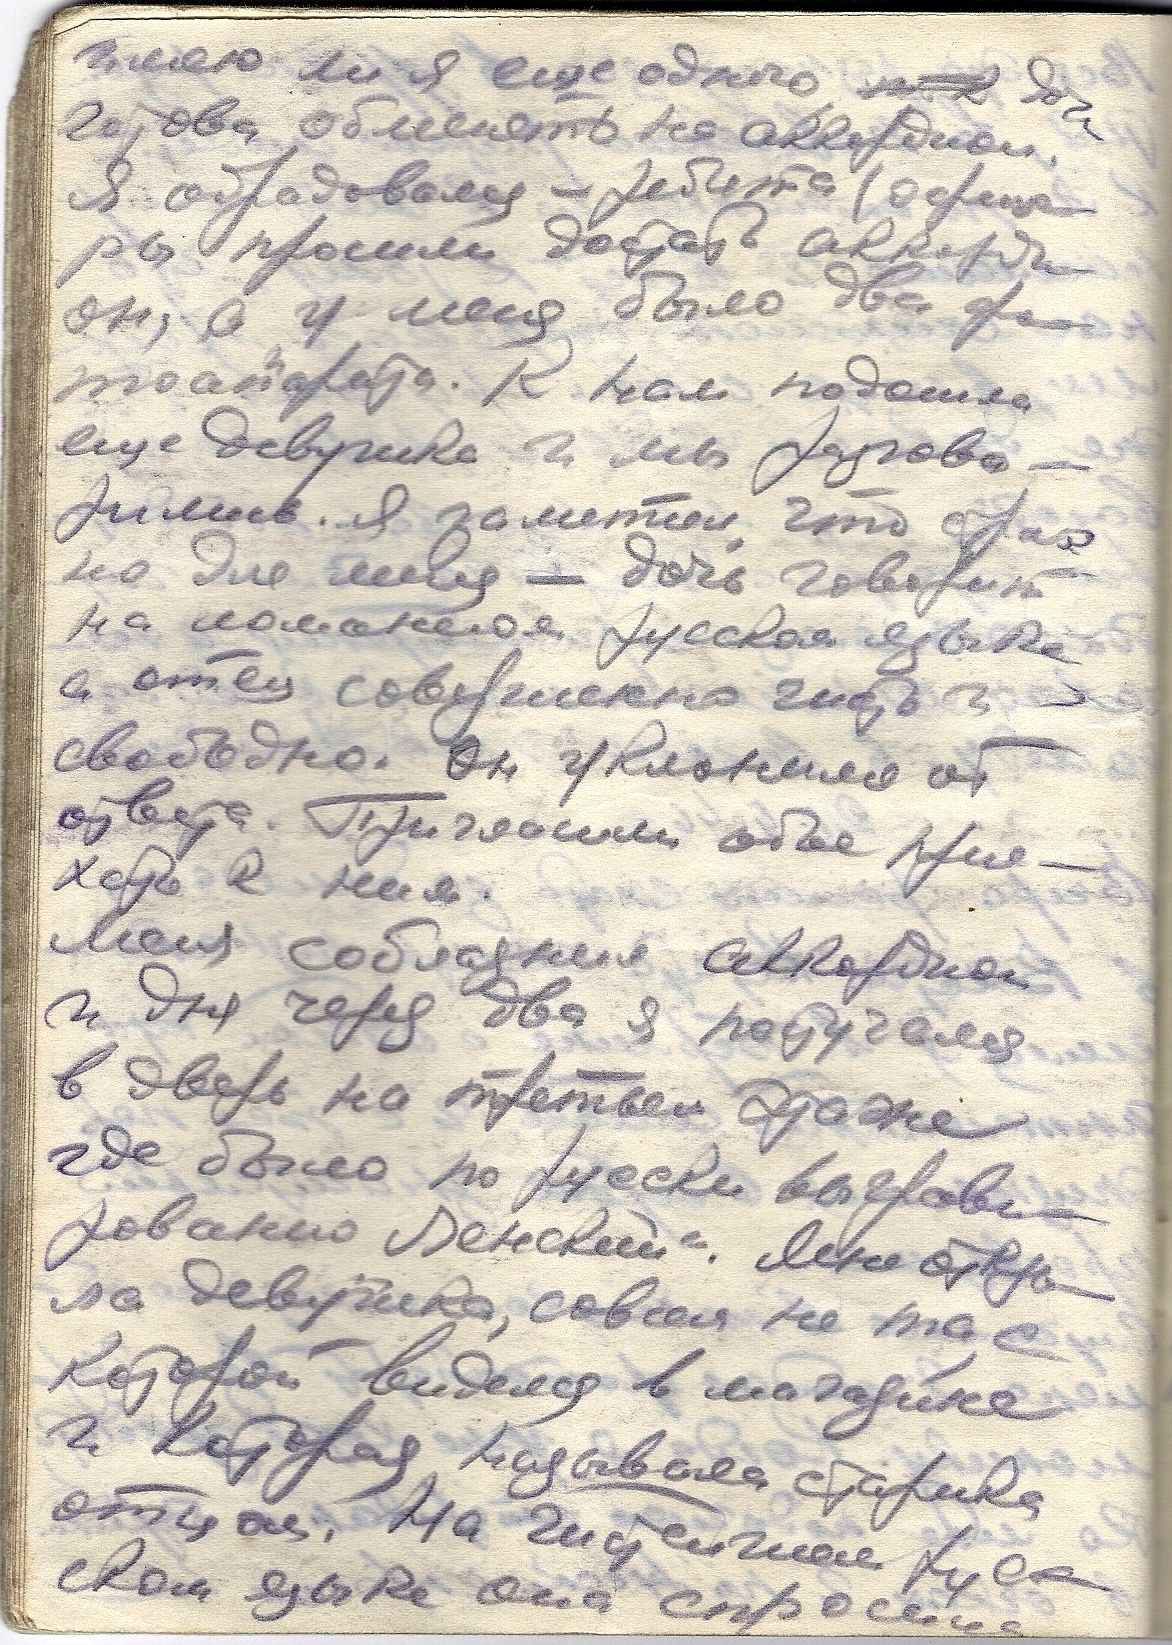 имею ли я еще одного, дочь
готова обменять на аккордион.
Я обрадовался – ребята (офице-
ры просили достать аккорди-
он, а у меня было два фо-
тоаппарата. К нам подошла
еще девушка и мы разгово-
рились. Я заметил, что стран
но для меня – дочь говорит
на ломанном русском языке
а отец совершенно чисто и
свободно. Он уклонился от
ответа. Пригласили обое прие-
хать к ним.
Меня соблазнил аккордион
и дня через два я постучался
в дверь на третьем этаже
где было по русски выграви-
ровано Ленский". Мне откры-
ла девушка, совсем не та с
которой виделся в магазине
и которая называла старика
отцом. На чистейшем русс-
ком языке она спросила